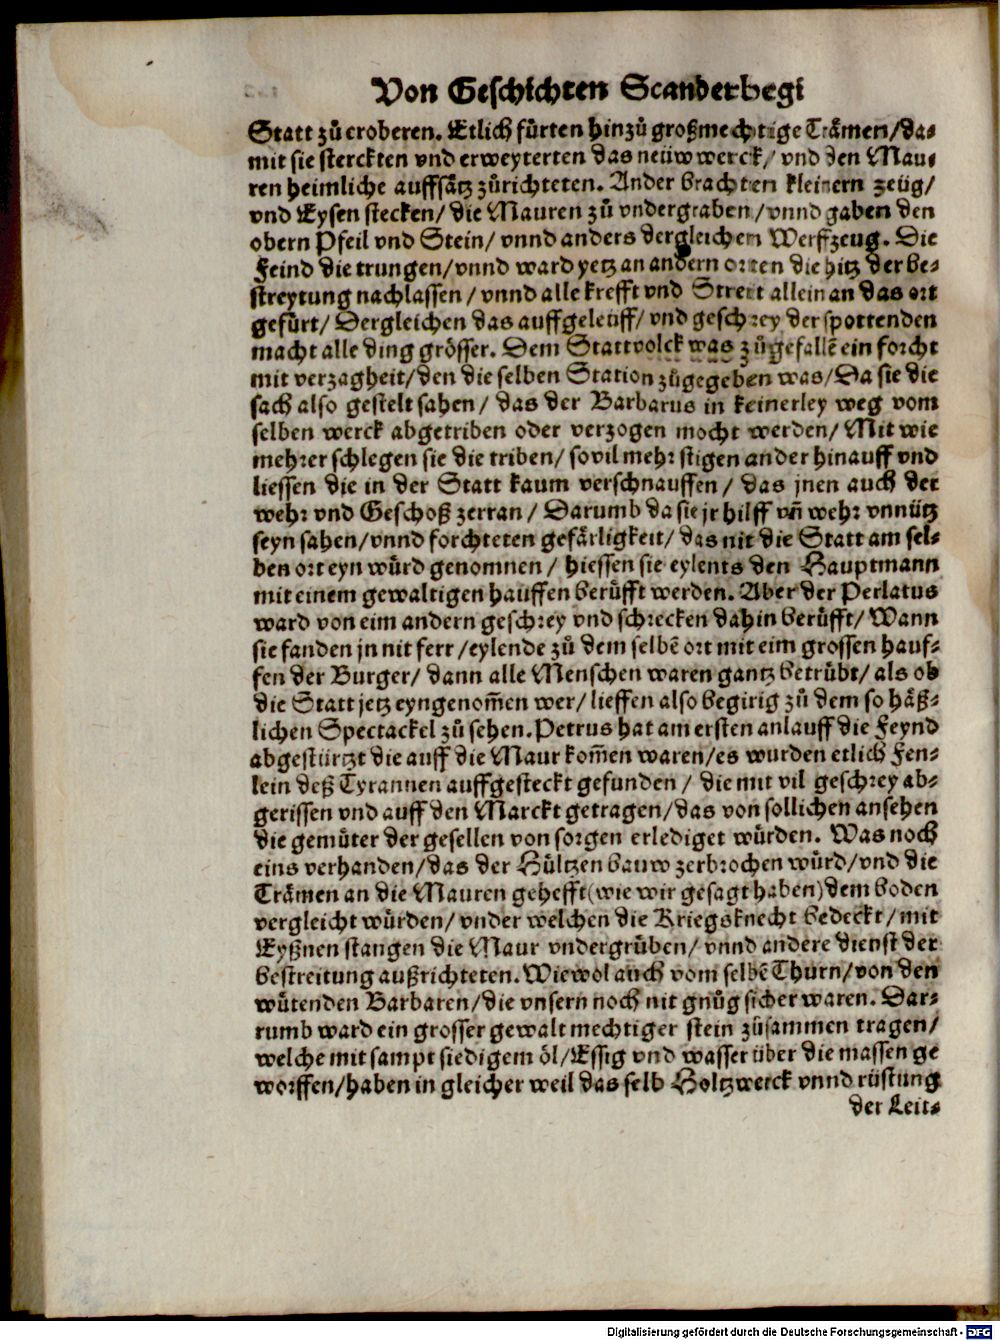 Von Geschichten Scanderbegi
Statt zů eroberen. Etlich fürten hinzů großmechtige Trämen/da⸗
mit sie sterckten vnd erweyterten das neüw werck/ vnd den Mau⸗
ren heimliche auffsätz zůrichteten. Ander brachten kleinern zeüg/
vnd Eysen stecken/ die Mauren zů vndergraben/vnnd gaben den
obern Pfeil vnd Stein/ vnnd anders dergleichen Werffzeug. Die
Feind die trungen/vnnd ward yetz an andern orten die hitz der be⸗
streytung nachlassen/vnnd alle krefft vnd Streit allein an das ort
gefürt/ Dergleichen das auffgeleüff/ vnd geschrey der spottenden
macht alle ding grösser. Dem Stattvolck was zůgefallē ein forcht
mit verzagheit/den die selben Station zůgegeben was/Da sie die
sach also gestelt sahen/ das der Barbarus in keinerley weg vom
selben werck abgetriben oder verzogen mocht werden/ Mit wie
mehrer schlegen sie die triben/ sovil mehr stigen ander hinauff vnd
liessen die in der Statt kaum verschnauffen/ das jnen auch der
wehr vnd Geschoß zerran/ Darumb da sie jr hilff vn̄ wehr vnnütz
seyn sahen/vnnd forchteten gefärligkeit/ das nit die Statt am sel⸗
ben ort eyn würd genomnen/ hiessen sie eylents den Hauptmann
mit einem gewaltigen hauffen berůfft werden. Aber der Perlatus
ward von eim andern geschrey vnd schrecken dahin berůfft/ Wann
sie fanden jn nit ferr/eylende zů dem selbē ort mit eim grossen hauf⸗
fen der Burger/ dann alle Menschen waren gantz betrübt/ als ob
die Statt jetz eyngenom̄en wer/lieffen also begirig zů dem so häß⸗
lichen Spectackel zů sehen. Petrus hat am ersten anlauff die Feynd
abgestürtzt die auff die Maur kom̄en waren/es wurden etlich Fen⸗
lein deß Tyrannen auffgesteckt gefunden/ die mit vil geschrey ab⸗
gerissen vnd auff den Marckt getragen/das von sollichen ansehen
die gemüter der gesellen von sorgen erlediget würden. Was noch
eins verhanden/das der Hültzen bauw zerbrochen würd/vnd die
Trämen an die Mauren gehefft(wie wir gesagt haben)dem boden
vergleicht würden/ vnder welchen die Kriegsknecht bedeckt/mit
Eyßnen stangen die Maur vndergrüben/ vnnd andere dienst der
bestreitung außrichteten. Wiewol auch vom selbē Thurn/von den
wütenden Barbaren/die vnsern noch nit gnůg sicher waren. Dar⸗
rumb ward ein grosser gewalt mechtiger stein zůsammen tragen/
welche mit sampt siedigem öl/Essig vnd wasser über die massen ge
worffen/haben in gleicher weil das selb Holtzwerck vnnd rüstung
der Leit⸗
Digitalisierung gefördert durch die Deutsche Forschungsgemeinschaft - DFG